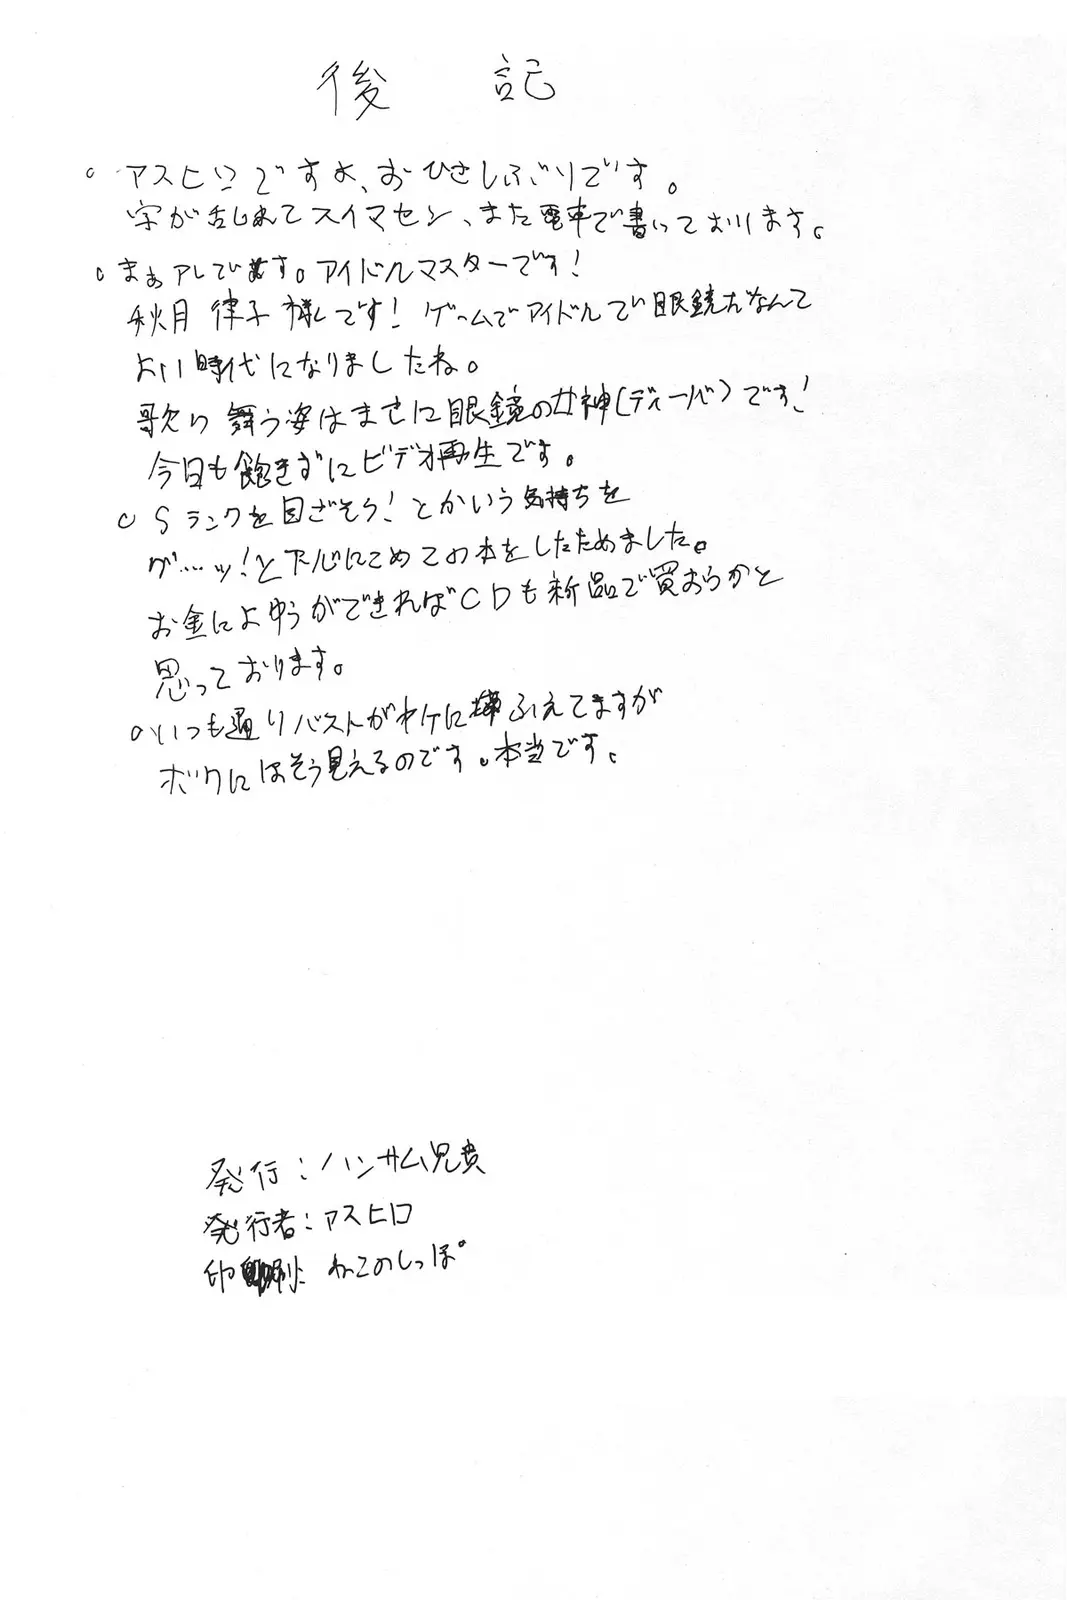 後 記
○ アスヒロですよ、おひさしぶりです。
字が乱れてスイマセン、また電車で書いております。
○ まぁアレでます。アイドルマスターです!
秋月 律子様です! ゲームでアイドルで眼鏡だなんて
よい時代になりましたね。
歌い 舞う姿はまさに眼鏡の女神(ディーバ)です!
今日も飽きずにビデオ再生です。
○ Sランクを目ざそう!とかいう気持ちを
グ…ッ!と下心にこめてこの本をしたためました。
お金によゆうができればCDも新品で買おうかと
思っております。
○いつも通りバストがヤケにふえてますが
ボクにはそう見えるのです。本当です。
発行:ハンサム兄貴
発行者:アスヒロ
印刷: ねこのしっぽ